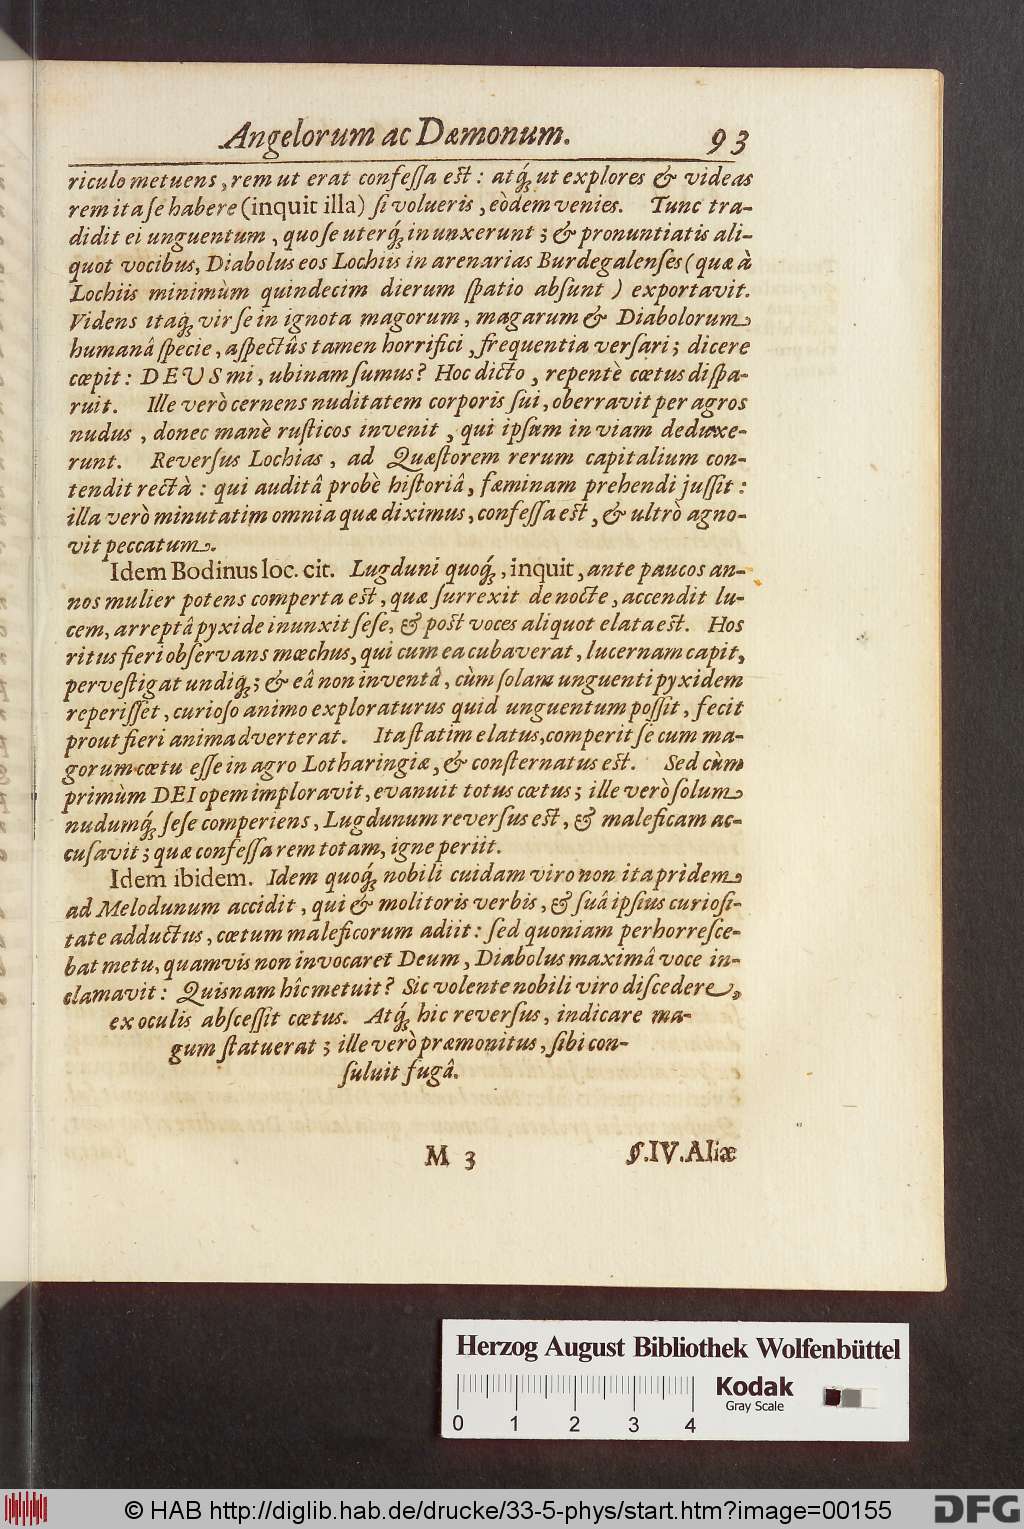 Angelorum ac Dæmonum. 93
riculo metuens, rem ut erat confeſſa eſt: atq́; ut explores & videas
rem ita ſe habere (inquit illa) ſi volueris, eòdem venies. Tunc tra-
didit ei unguentum, quo ſe uterq́; inunxerunt; & pronuntiatis ali-
quot vocibus, Diabolus eos Lochiis in arenarias Burdegalenſes (quæ à
Lochiis minimùm quindecim dierum ſpatio abſunt) exportavit.
Videns itaq́; vir ſe in ignota magorum, magarum & Diabolorum
humanâ ſpecie, aſpectûs tamen horrifici, frequentia verſari; dicere
cœpit: DEUS mi, ubinam ſumus? Hoc dicto, repentè cœtus diſpa-
ruit. Ille verò cernens nuditatem corporis ſui, oberravit per agros
nudus, donec manè ruſticos invenit, qui ipſum in viam deduxe-
runt. Reverſus Lochias, ad Quæſtorem rerum capitalium con-
tendit rectà: qui auditâ probè hiſtoriâ, fæminam prehendi juſſit:
illa verò minutatim omnia quæ diximus, confeſſa eſt, & ultrò agno-
vit peccatum.
Idem Bodinus loc. cit. Lugduni quoq́;, inquit, ante paucos an-
nos mulier potens comperta eſt, quæ ſurrexit de nocte, accendit lu-
cem, arreptâ pyxide inunxit ſeſe, & poſt voces aliquot elata eſt. Hos
ritus fieri obſervans mœchus, qui cum ea cubaverat, lucernam capit,
perveſtigat undiq́;; & eâ non inventâ, cùm ſolam unguenti pyxidem
reperiſſet, curioſo animo exploraturus quid unguentum poſſit, fecit
prout fieri animadverterat. Ita ſtatim elatus, comperit ſe cum ma-
gorum cœtu eſſe in agro Lotharingiæ, & conſternatus eſt. Sed cùm
primùm DEI opem imploravit, evanuit totus cœtus; ille verò ſolum
nudumq́; ſeſe comperiens, Lugdunum reverſus eſt, & maleficam ac-
cuſavit; quæ confeſſa rem totam, igne periit.
Idem ibidem. Idem quoq́; nobili cuidam viro non ita pridem
ad Melodunum accidit, qui & molitoris verbis, & ſuâ ipſius curioſi-
tate adductus, cœtum maleficorum adiit: ſed quoniam perhorreſce-
bat metu, quamvis non invocaret Deum, Diabolus maximâ voce in-
clamavit: Quisnam hîc metuit? Sic volente nobili viro diſcedere,
ex oculis abſceſſit cœtus. Atq́; hic reverſus, indicare ma-
gum ſtatuerat; ille verò præmonitus, ſibi con-
ſuluit fugâ.
M 3 §. IV. Aliæ
Herzog August Bibliothek Wolfenbüttel
Kodak
Gray Scale
0 1 2 3 4
© HAB http://diglib.hab.de/drucke/33-5-phys/start.htm?image=00155
DFG